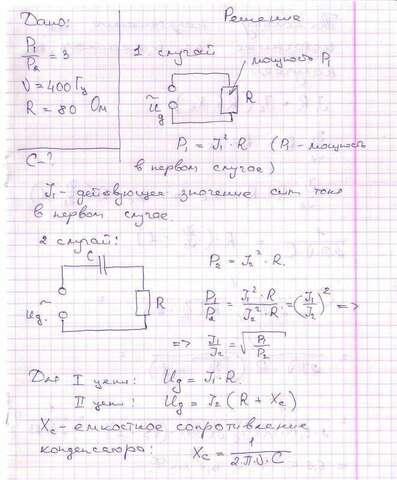 Дано:
Решение
P₁/P₂ = 3
ν = 400 Гц
R = 80 Ом
C-?
1 случай
мощность P₁
~
Uд
R
P₁ = J₁² · R (P₁ - мощность
в первом случае)
J₁ - действующее значение силы тока
в первом случае.
2 случай:
C
~
Uд.
R
P₂ = J₂² · R.
P₁/P₂ = J₁² · R / J₂² · R = (J₁/J₂)² =>
=> J₁/J₂ = √(P₁/P₂)
Для I цепи: Uд = J₁ · R.
II цепи: Uд = J₂ (R + Xc)
Xc - емкостное сопротивление
конденсатора: Xc = 1/(2·П·ν·C)